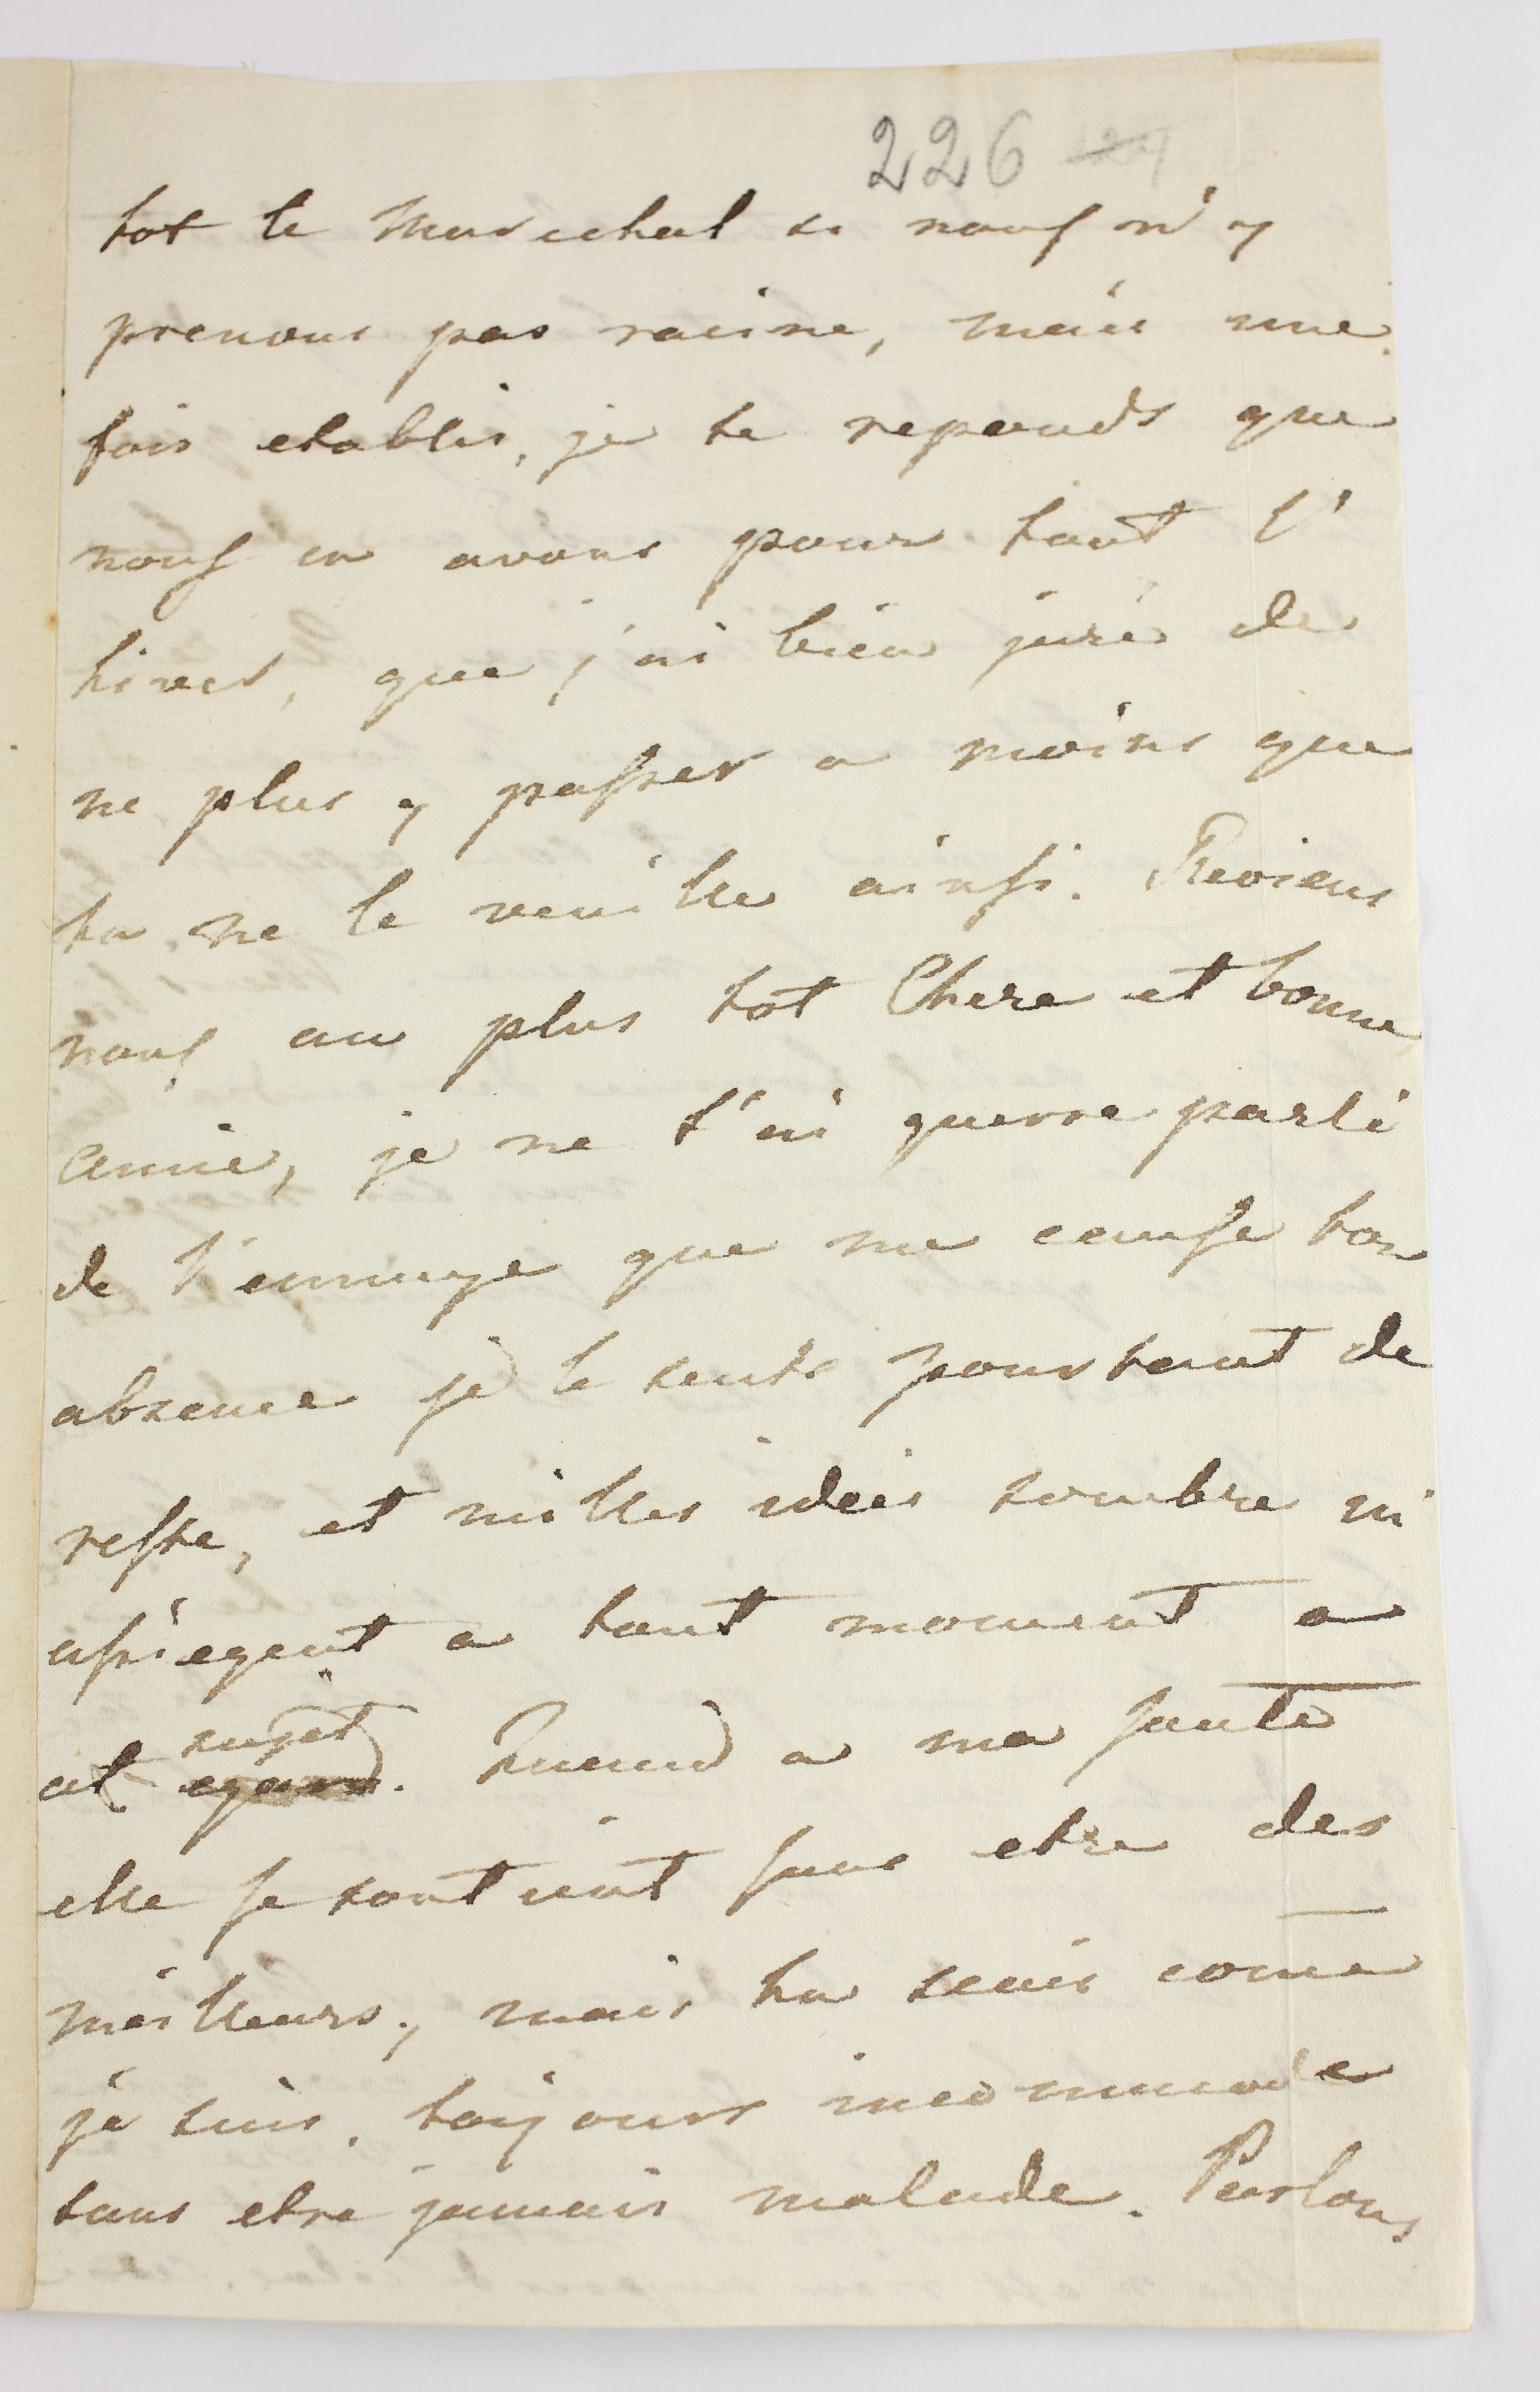 226
tot le Marechal si nous n'y
prenons pas racine, mais une
fois etablis, je te reponds que
nous en avons pour tout l'
hiver, que j'ai bien juré de
ne plus y passer a moins que
tu ne le veuille ainsi. Reviens
nous au plus tot Chere et bonne
Amie, je ne t'ai guerre parlé
de l'ennuye que me cause ton
absence je le sents pourtant de
reste, et milles idees sombre m'
assiegent a tout moment a
cet sujet. Quand a ma santé
elle se soutient sans etre des
meilleurs, mais tu scais come
je suis, toujours incommode
sans etre jamais malade. Parlons